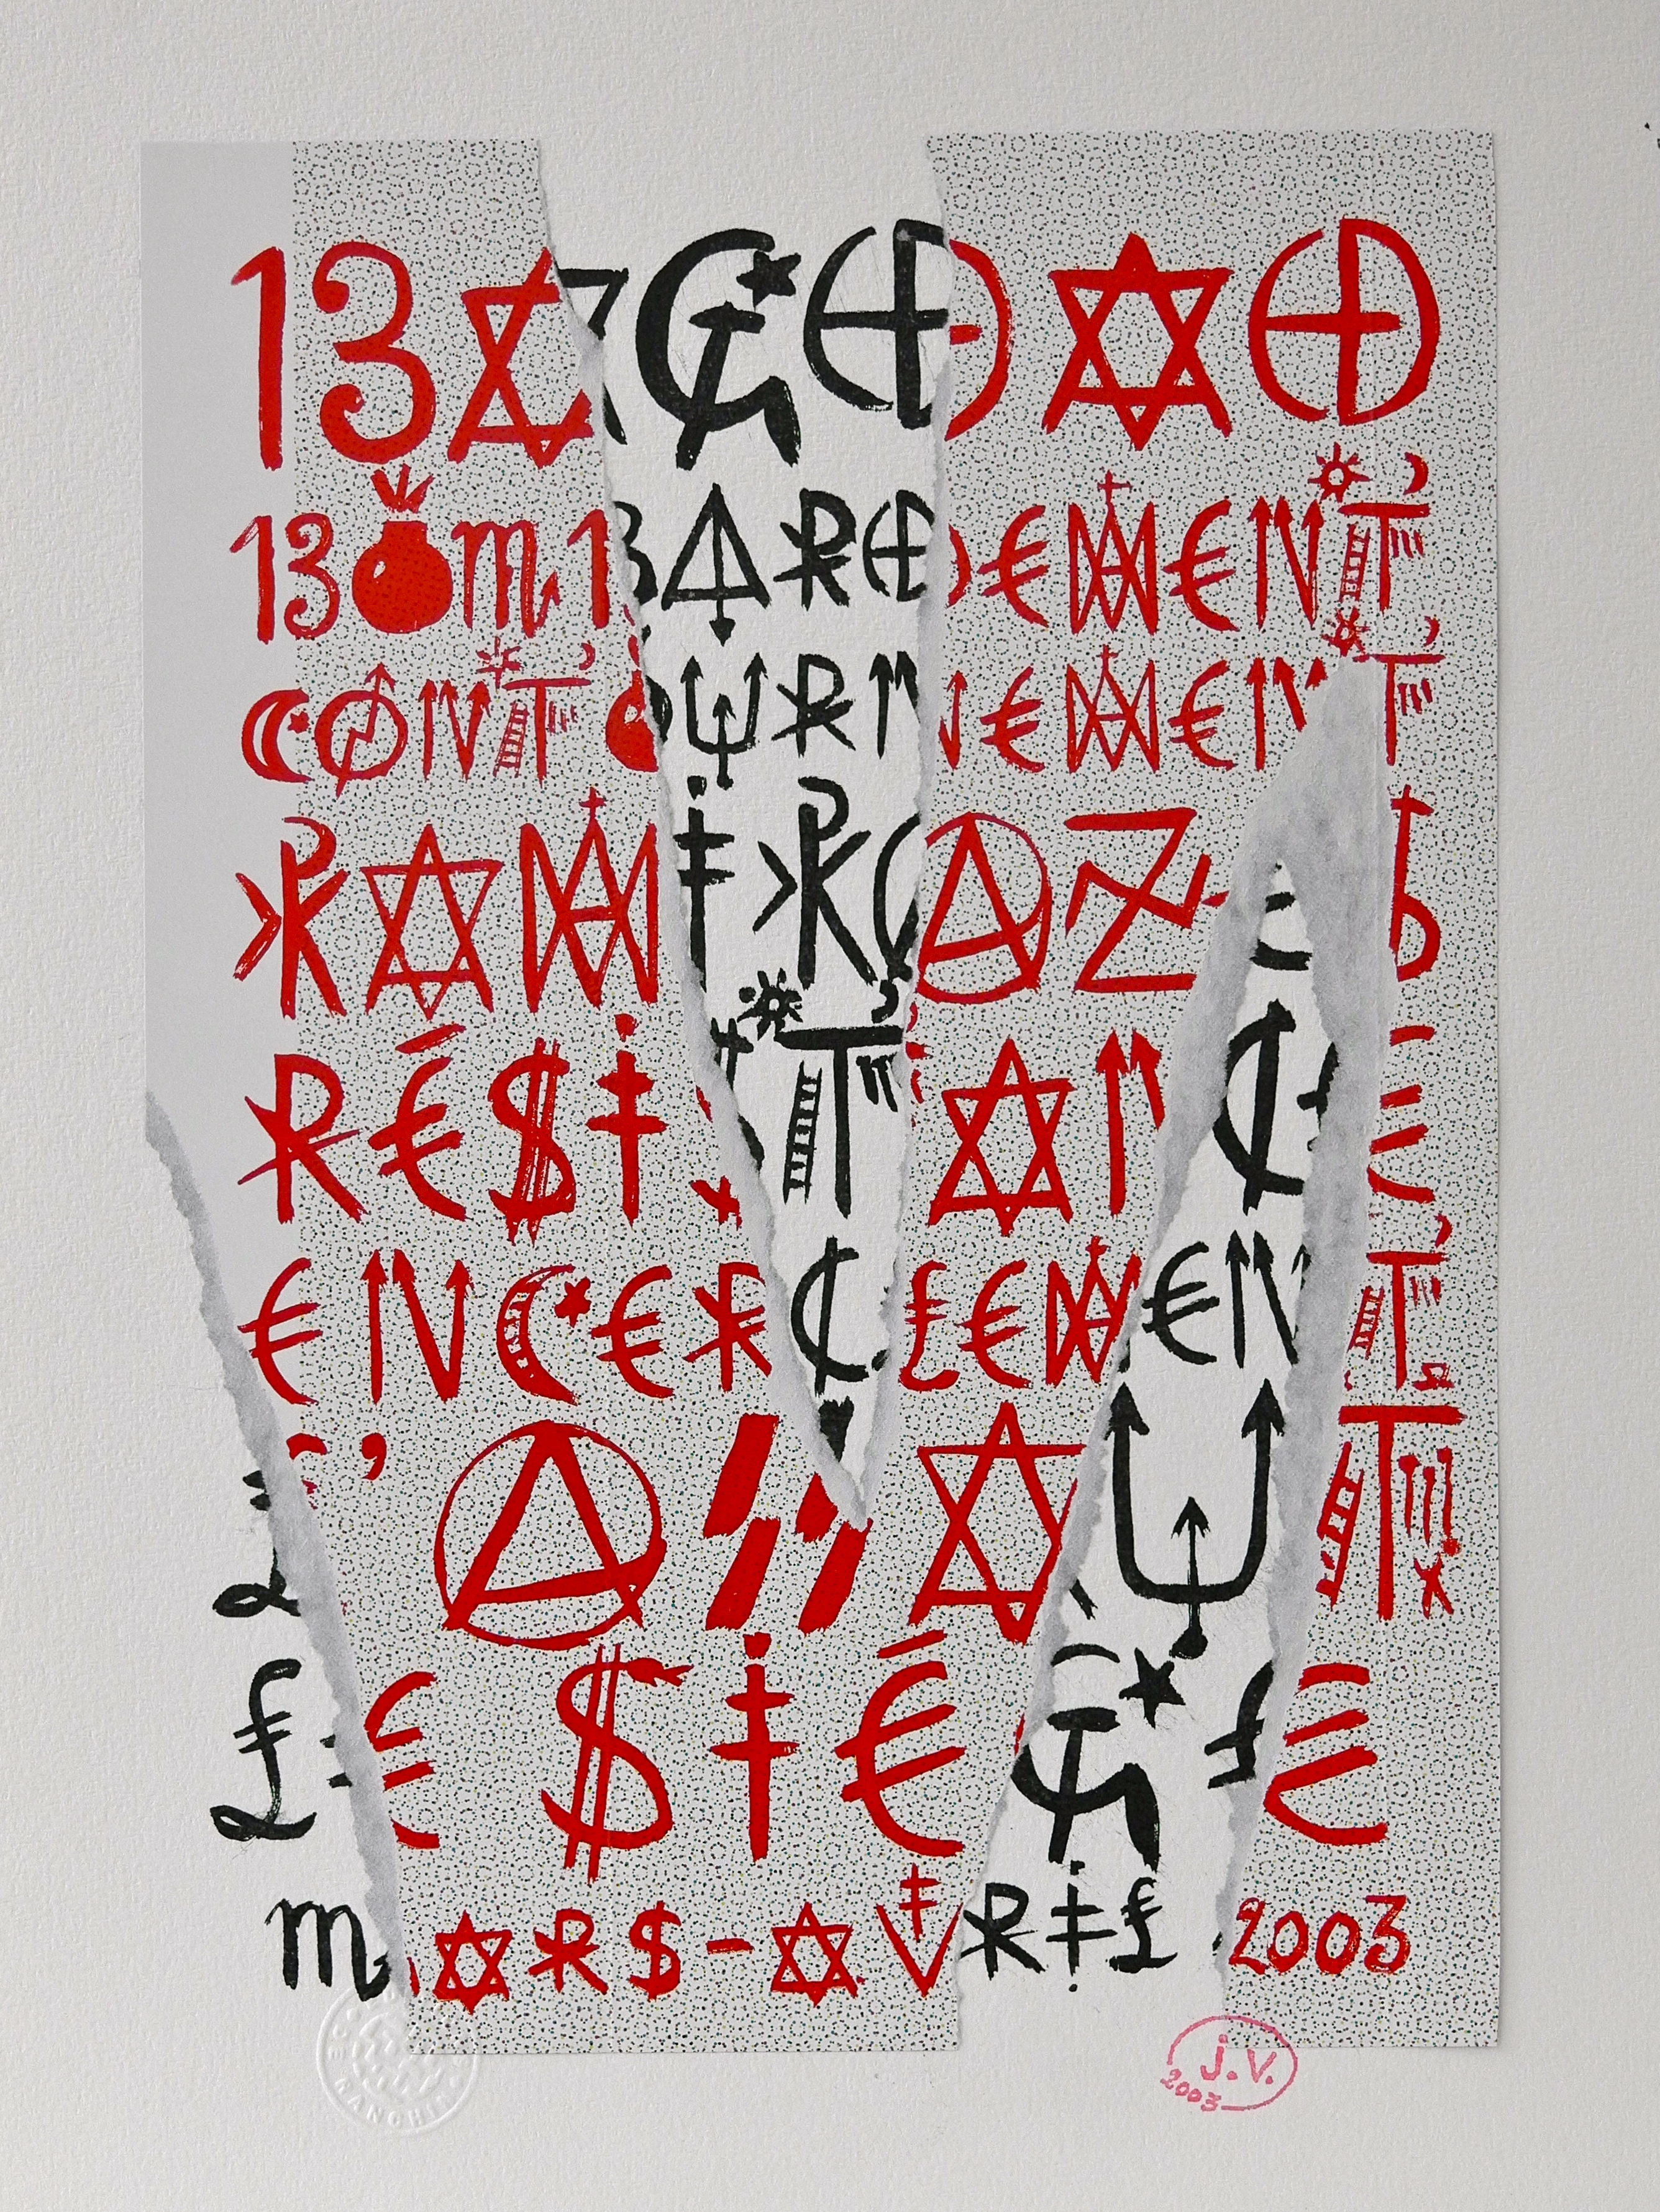 BAGDAD
BOMBARDEMENT
CONTOURNEMENT
RÉSISTANCE
ENCERCLEMENT
L'ASSAUT
LE SIÉGE
MARS-AVRIL 2003
J.V.
2003